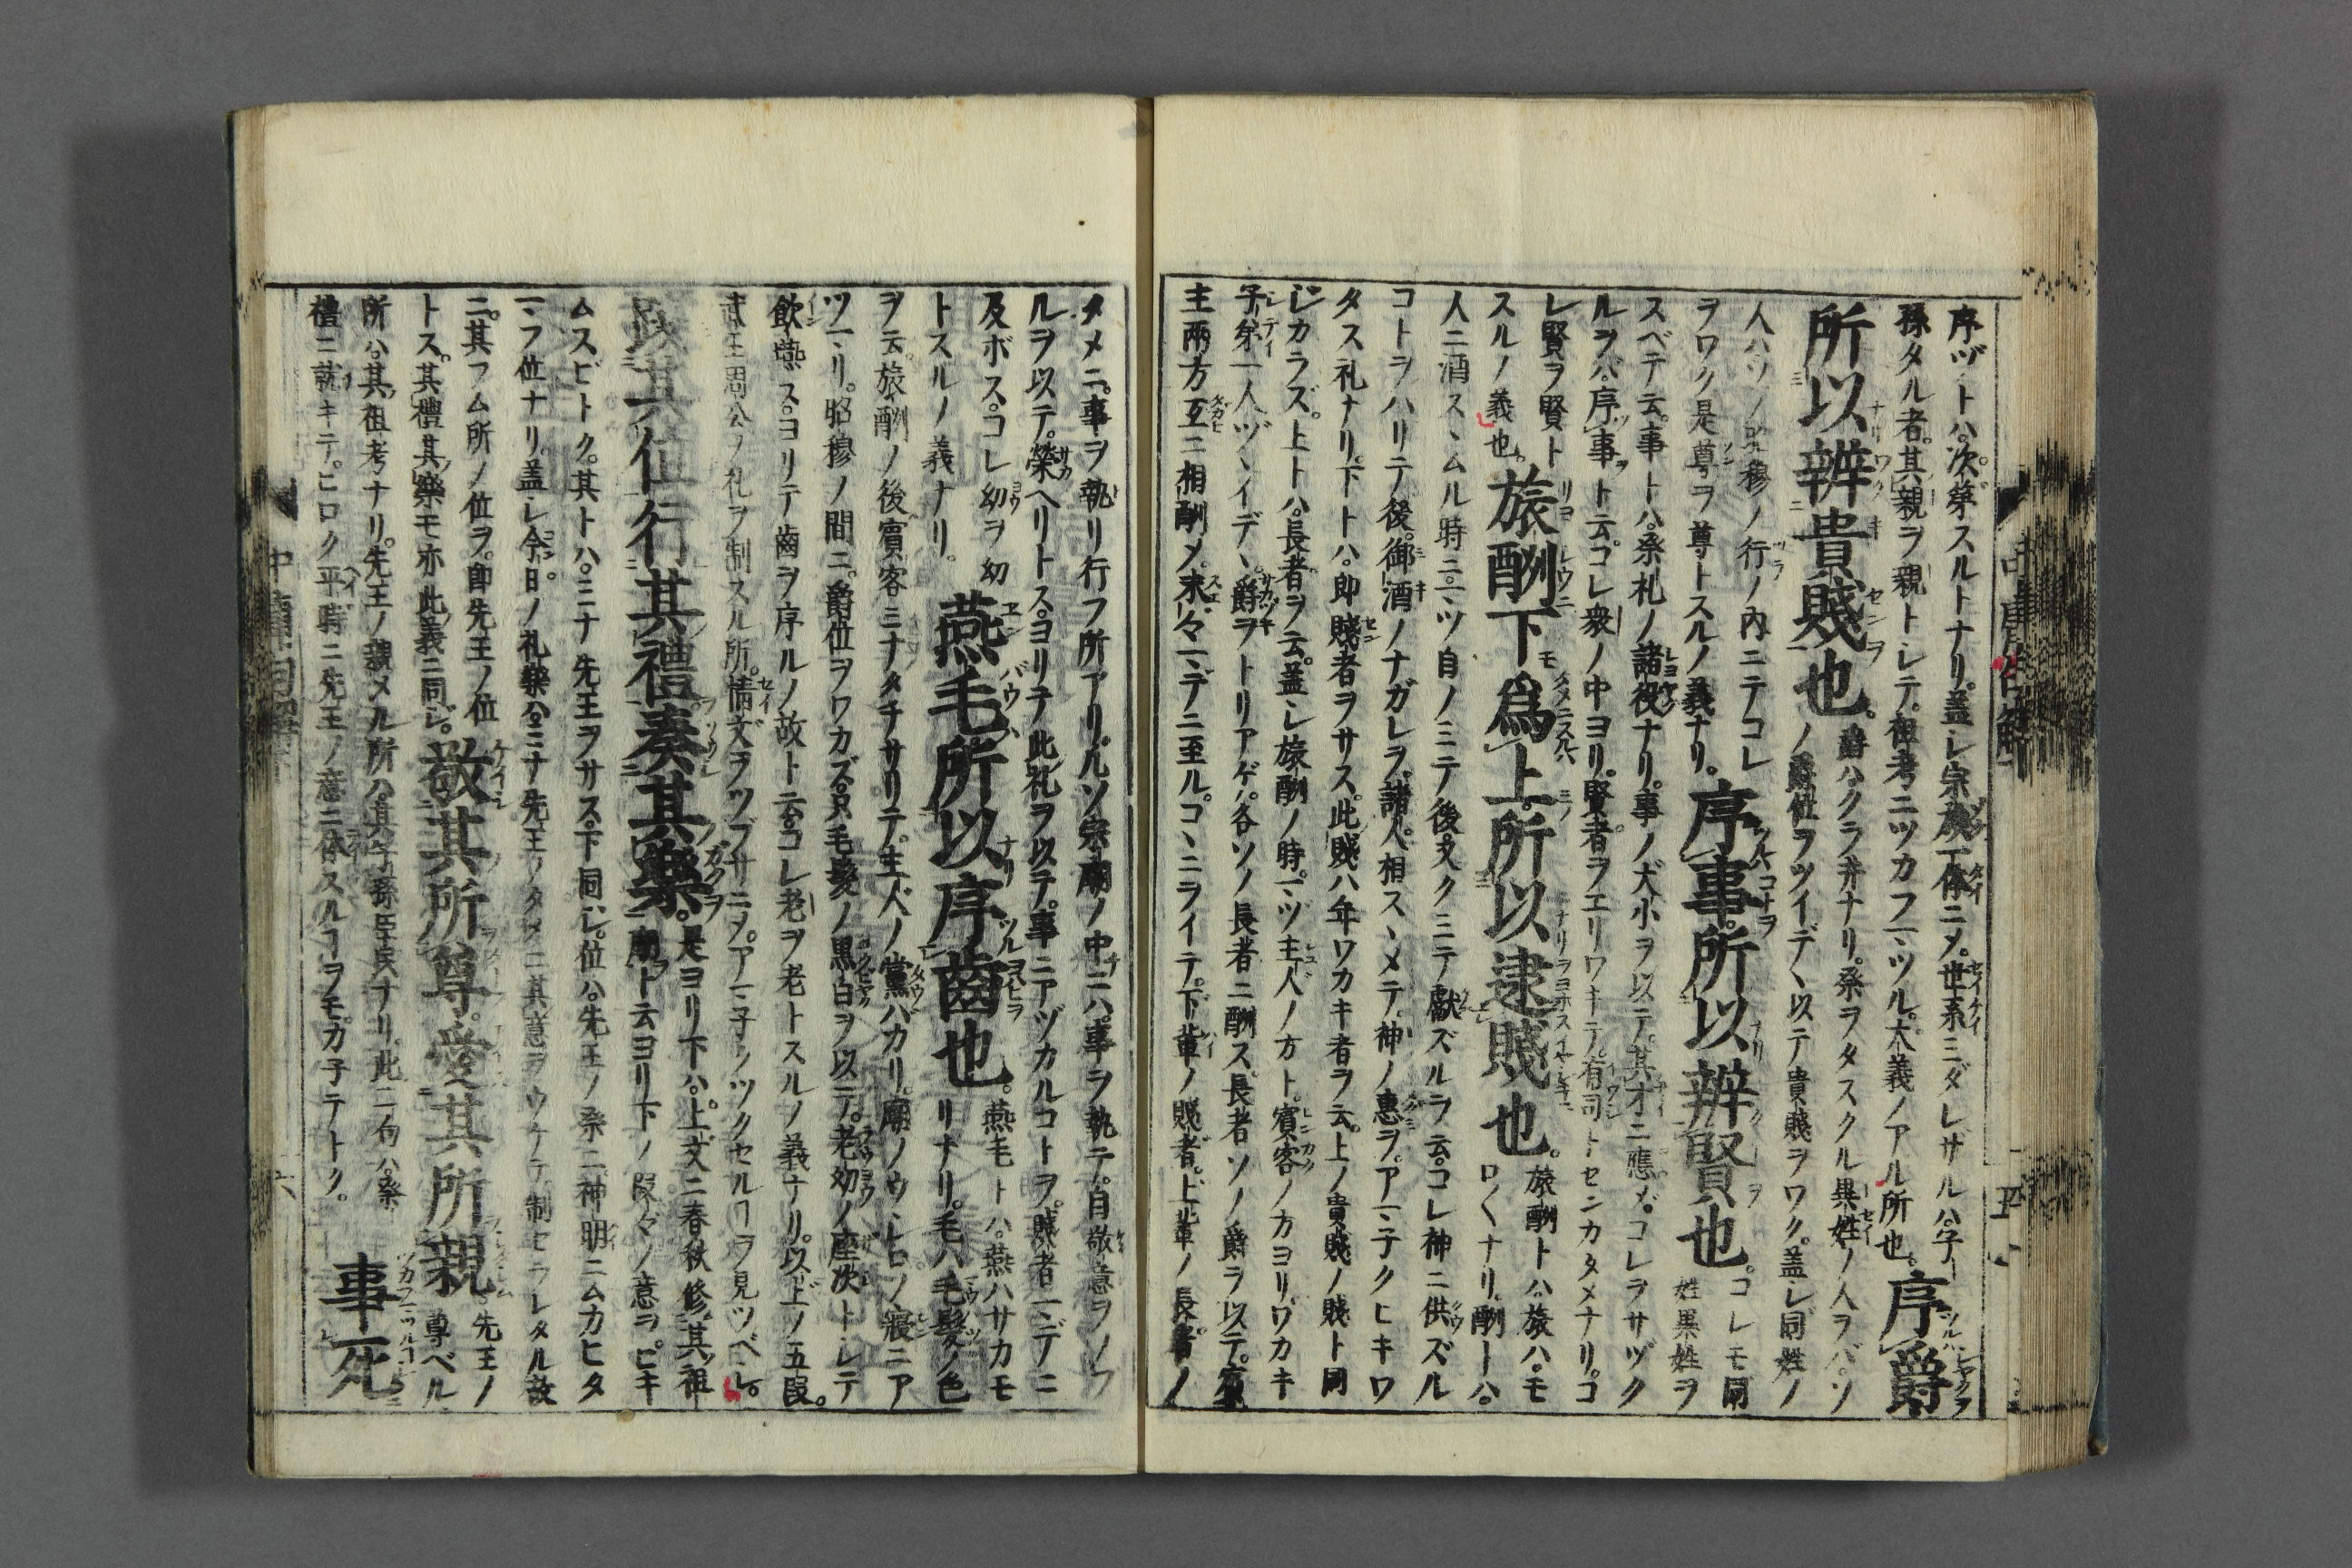 序ヅトハ次第スルトナリ。蓋シ宗族一体ニメ。世系ミダレサルハ子
孫タル者。其親ヲ親トレテ。祖考ニツカフマツル。大義ノアル所也。序爵
所以辨貴賤也。爵ハクラ井ナリ。祭ヲタスクル異姓ノ人ヲバ。ソ
ノ爵位ヲツイデヽ以テ貴賤ヲワク。蓋シ同姓ノ
人ハソノ昭穆ノ行ノ内ニテコレ
ヲワク是尊ヲ尊トスルノ義ナリ。序事。所以辨賢也。コレモ同
姓異姓ヲ
スベテ云。事トハ。祭礼ノ諸役ナリ。事ノ大小ヲ以テ。其才ニ應ズ。コレヲサヅク
ルヲバ序事ト云。コレ衆ノ中ヨリ。賢者ヲエリワキテ。有司トセンカタメナリ。コ
レ賢ヲ賢ト
スルノ義也。旅酬下為上。所以逮賤也。旅酬トハ。旅ハ。モ
ロ〱ナリ。酬トハ。
人ニ酒スヽムル時ニ。マヅ自ノミテ後又クミテ獻ズルヲ云。コレ神ニ供ズル
コトヲハリテ後。御酒ノナガレヲ。諸人。相スヽメテ。神ノ惠ヲ。アマ子クヒキワ
タス礼ナリ。下トハ。即賤者ヲサス。此賤ハ年ワカキ者ヲ云。上ノ貴賤ノ賤ト同
シカラズ。上トハ。長者ヲ云。蓋シ旅酬ノ時。マヅ主人ノ方ト。賓客ノ方ヨリ。ワカキ
子弟一人ヅヽイデヽ。爵ヲトリアゲ。各ソノ長者ニ酬ス。長者ソノ爵ヲ以テ。賓
主両方互ニ相酬メ。末々マデニ至ル。コヽニヲイテ。下輩ノ賤者。上輩ノ長者ノ
タメニ。事ヲ執リ行フ所アリ。凡ソ宗廟ノ中ニハ。事ヲ執テ。自敬意ヲノフ
ルヲ以テ。榮ヘリトス。ヨリテ此礼ヲ以テ。事ニアヅカルコトヲ。賤者マデニ
及ボス。コレ幼ヲ幼
トスルノ義ナリ。燕毛所以序齒也。燕毛トハ。燕ハサカモ
リナリ。毛ハ毛髪ノ色
ヲ云。旅酬ノ後賓客ミナタチサリテ。主人ノ黨ハカリ。廟ノウシロノ寢ニア
ツマリ。昭穆ノ間ニ。爵位ヲワカズ。只毛髪ノ黒白ヲ以テ。老幼ノ座次トレテ
飲燕ス。ヨリテ齒ヲ序ルノ故ト云。コレ老ヲ老トスルノ義ナリ。以上ノ五段。
武王周公ノ礼ヲ制スル所。情文ヲツブサニメ。アマ子クツクセルコヲ見ツベシ。
践其位行其禮奏其樂。是ヨリ下ハ。上文ニ春秋修其祖
廟ト云ヨリ下ノ段々ノ意ヲ。ヒキ
ムスビトク。其トハ。ミナ先王ヲサス。下同レ。位ハ。先王ノ祭ニ神明ニムカヒタ
マフ位ナリ。蓋レ今日ノ礼樂ハミナ先王ノタメニ其意ヲウケテ。制セラレタル故
ニ。其フム所ノ位ヲ。即先王ノ位
トス。其禮其樂モ亦此義ニ同ジ。敬其所尊。愛其所親。先王ノ
尊ベル
所ハ。其祖考ナリ。先王ノ親メル所ハ。其子孫臣民ナリ。此二句ハ。祭
禮ニ就キテ。ヒロク平時ニ先王ノ意ニ体スルコヲモカ子テトク。事死
中庸句解
五
六